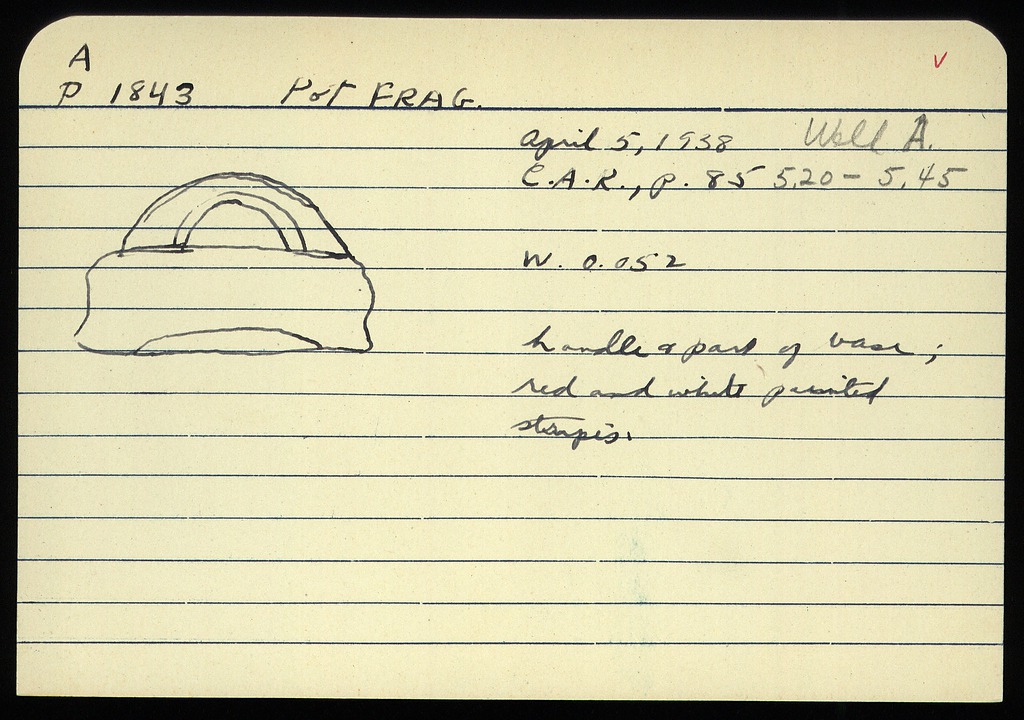 A
P 1843 Pot FRAG.
April 5, 1938 Well A.
C.A.R., p. 85 5.20 - 5.45
W. 0.052
handle & part of vase;
red and white painted
stripes.